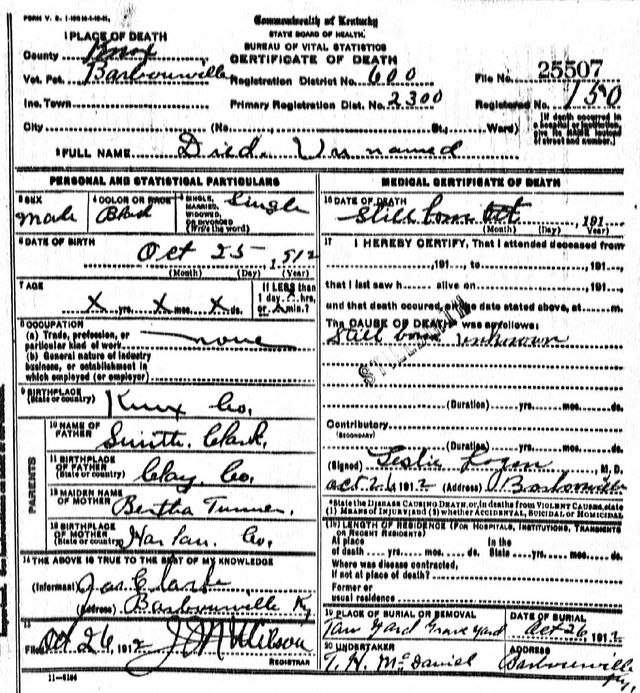 FORM V. S. 1-
Commonwealth of Kentucky
STATE BOARD OF HEALTH.
BUREAU OF VITAL STATISTICS
CERTIFICATE OF DEATH
1 PLACE OF DEATH
County Knox
Vot. Pct. Barbourville Registration District No. 600 File No. 25507
Inc. Town Primary Registration Dist. No. 2300 Registered No. 150
City (No. St., Ward)
[If death occurred in a hospital or institution, give its NAME instead of street and number.]
2 FULL NAME Died. Unnamed
PERSONAL AND STATISTICAL PARTICULARS
3 SEX Male
4 COLOR OR RACE Black
5 SINGLE, MARRIED, WIDOWED, OR DIVORCED (Write the word) Single
6 DATE OF BIRTH
Oct 25, 1912
(Month) (Day) (Year)
7 AGE
X yrs. X mos. X ds.
If LESS than 1 day, hrs. or min.?
8 OCCUPATION
(a) Trade, profession, or
particular kind of work none
(b) General nature of industry
business, or establishment in
which employed (or employer)
9 BIRTHPLACE
(State or country) Knox Co.
PARENTS
10 NAME OF
FATHER Smith. Clark.
11 BIRTHPLACE
OF FATHER
(State or country) Clay. Co.
12 MAIDEN NAME
OF MOTHER Bertha Turner.
13 BIRTHPLACE
OF MOTHER
(State or country) Harlan. Co.
14 THE ABOVE IS TRUE TO THE BEST OF MY KNOWLEDGE
(Informant) Jas Clark
(Address) Barbourville Ky
15
Filed Oct 26 1912 J M Wilson
REGISTRAR
11-6184
MEDICAL CERTIFICATE OF DEATH
16 DATE OF DEATH
Still born Oct 191
(Month) (Day) (Year)
17 I HEREBY CERTIFY, That I attended deceased from
, 191 , to , 191 ,
that I last saw h alive on , 191 ,
and that death occured, on the date stated above, at m.
The CAUSE OF DEATH was as follows:
Still born unknown
STILLBIRTH
(Duration) yrs. mos. ds.
Contributory
(SECONDARY)
(Duration) yrs. mos. ds.
(Signed) Leslie Logan, M. D.
Oct 26 1912 (Address) Barbourville
*State the DISEASE CAUSING DEATH, or, in deaths from VIOLENT CAUSES, state
(1) MEANS OF INJURY; and (2) whether ACCIDENTAL, SUICIDAL or HOMICIDAL
18 LENGTH OF RESIDENCE (FOR HOSPITALS, INSTITUTIONS, TRANSIENTS
OR RECENT RESIDENTS)
At place In the
of death yrs. mos. ds. State yrs. mos. ds.
Where was disease contracted,
if not at place of death?
Former or
usual residence
19 PLACE OF BURIAL OR REMOVAL DATE OF BURIAL
Tan Yard Grave yard Oct 26 1912
20 UNDERTAKER ADDRESS
T. H. McDaniel Barbourville Ky.